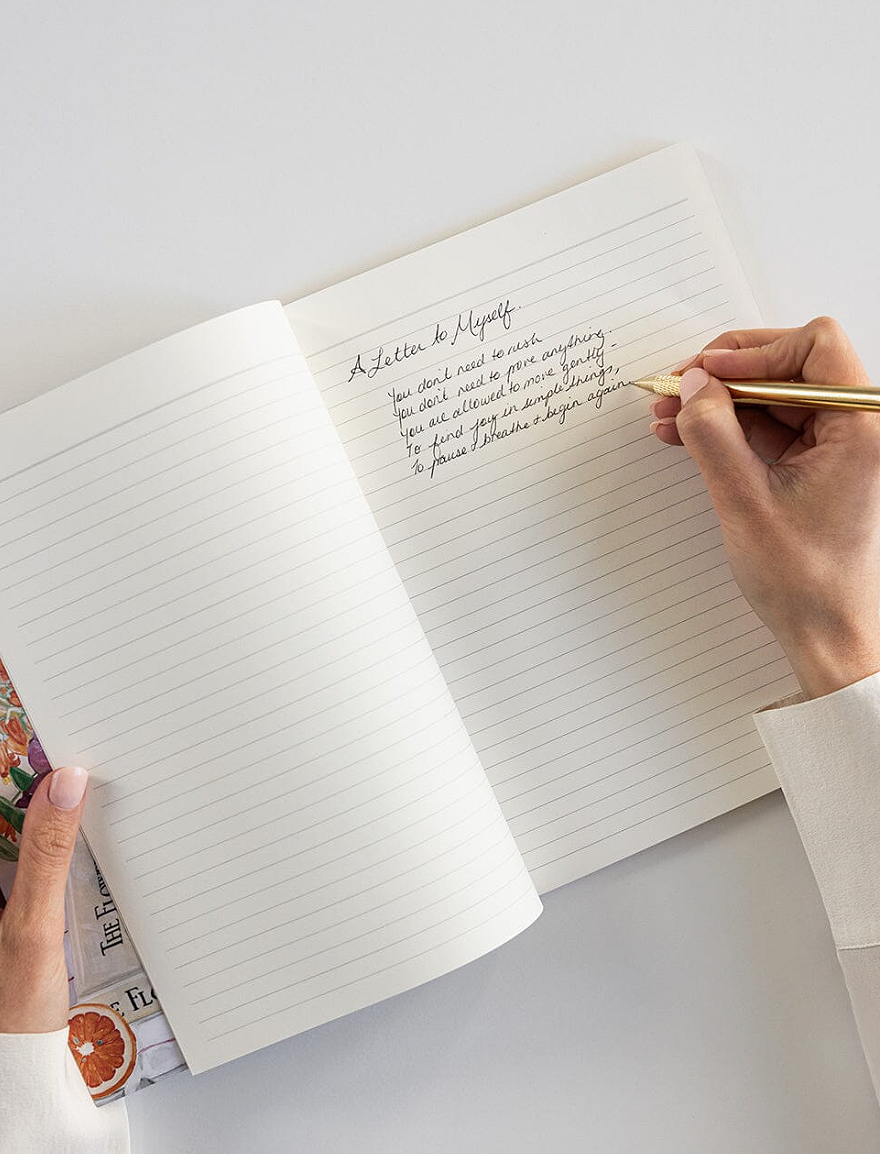 A Letter to Myself.
You don't need to rush
You don't need to prove anything.
You are allowed to move gently -
To find joy in simple things,
To pause & breathe & begin again
THE FLO
E FLO